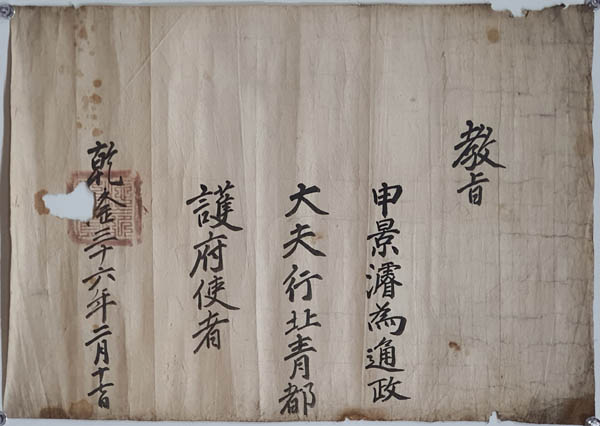 教旨
申景濬為通政
大夫行北青都
護府使者
乾隆三十六年二月十日